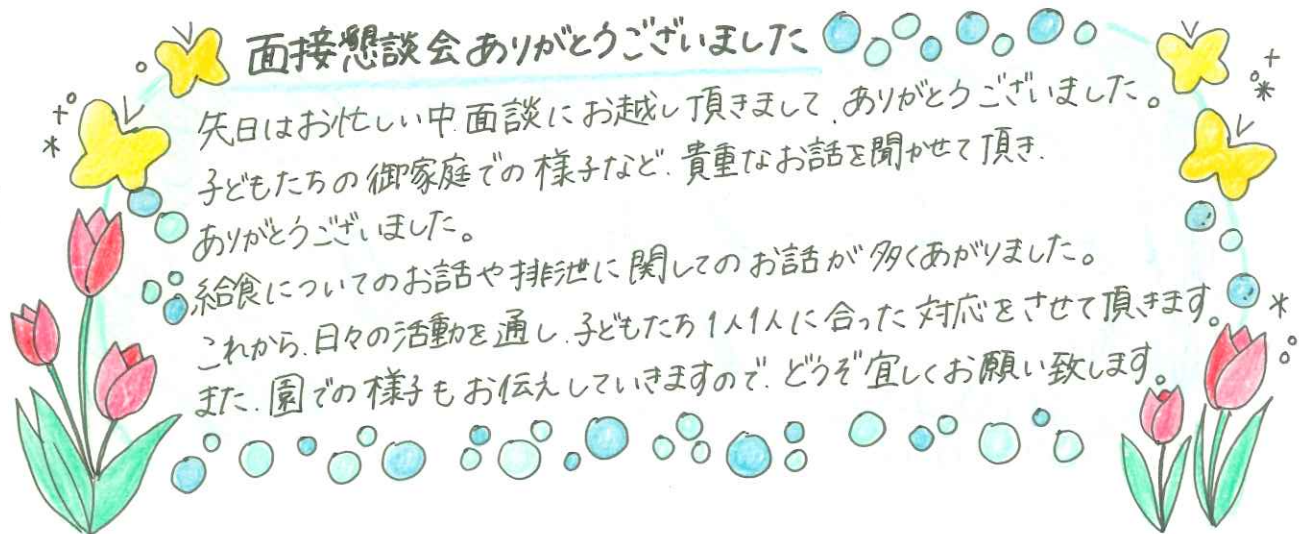 面接懇談会ありがとうございました
先日はお忙しい中、面談にお越し頂きまして、ありがとうございました。
子どもたちの御家庭での様子など、貴重なお話を聞かせて頂き、
ありがとうございました。
給食についてのお話や排泄に関してのお話が多くあがりました。
これから、日々の活動を通し、子どもたち1人1人に合った対応をさせて頂きます。
また、園での様子もお伝えしていきますので、どうぞ宜しくお願い致します。